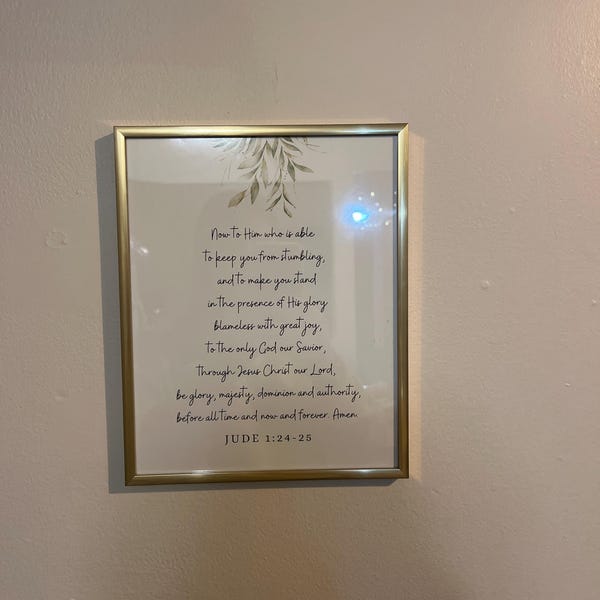 Now to Him who is able
to keep you from stumbling,
and to make you stand
in the presence of His glory
blameless with great joy,
to the only God our Savior,
through Jesus Christ our Lord,
be glory, majesty, dominion and authority,
before all time and now and forever. Amen.
JUDE 1:24-25